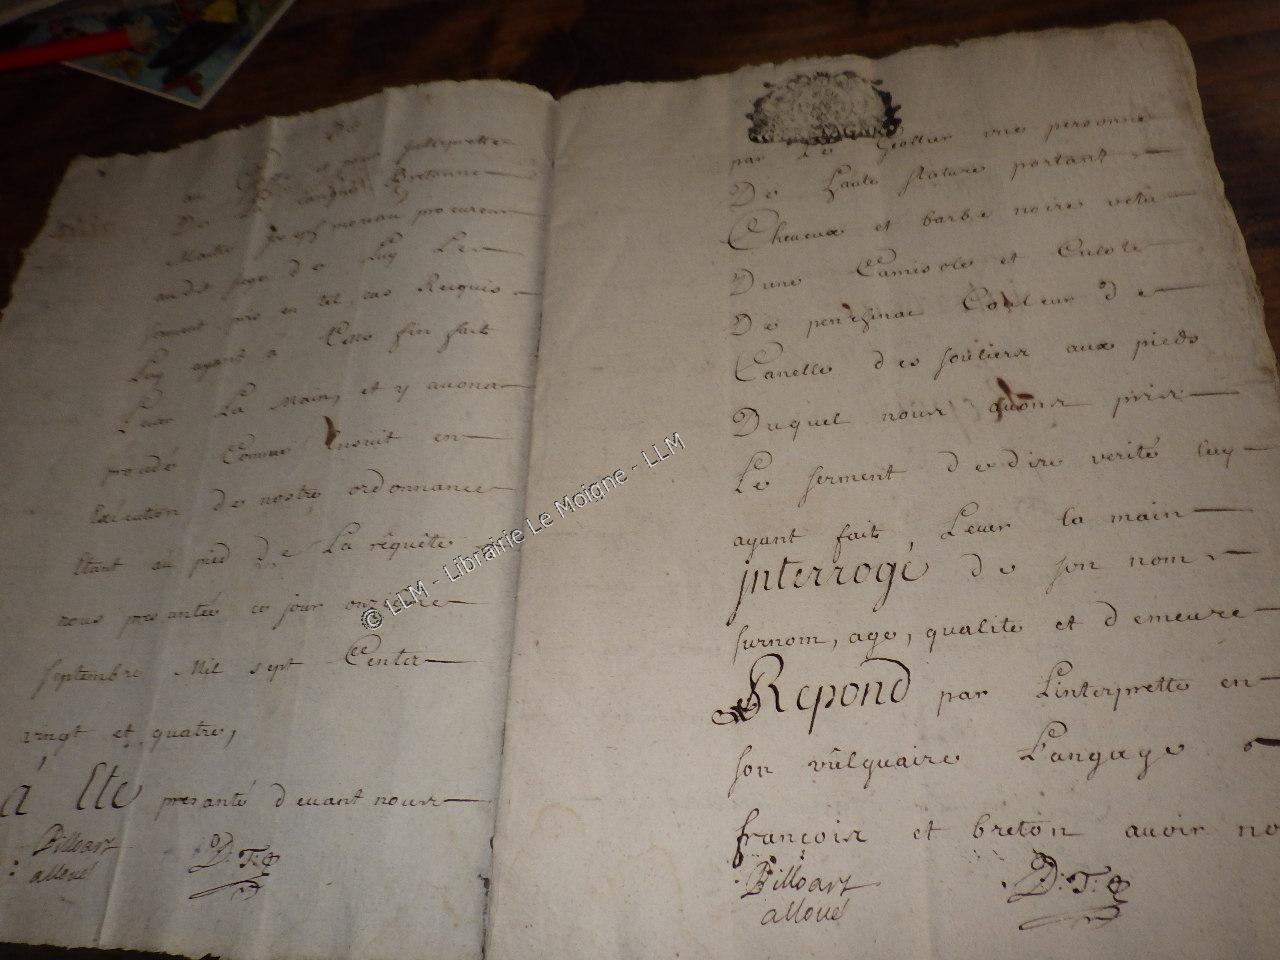 et pour Interprette
De Langue Bretonne
Maitre Joseph moreau procureur
audit siege de Luy Le ser
jament pris en tel cas Requis
Luy ayant a Cette fin fait
Lever La Main, et y avons
procedé Comme Ensuit en
Exécution de nostre ordonnance
Etant au pied de La requéte
nous presantée ce jour onze
septembre Mil sept Cents
vingt et quatre,
á Eté presanté devant nous
Billoart
alloué
D: T: G
BRETAGNE
par Le Geollier une personne
De haute stature portant
Cheveux et barbe noire vetu
Dune Camisole et Culote
De Couleur de
Canelle des souliers aux pieds
Duquel nous avons pris
Le serment de dire verité luy
ayant fait Lever la main
interrogé de son nom
surnom, age, qualite et demeure
Repond par Linterprette en
son vulguaire Langage
francois et breton avoir no
Billoart
alloué
D: T: G
© LLM - Librairie Le Moigne - LLM